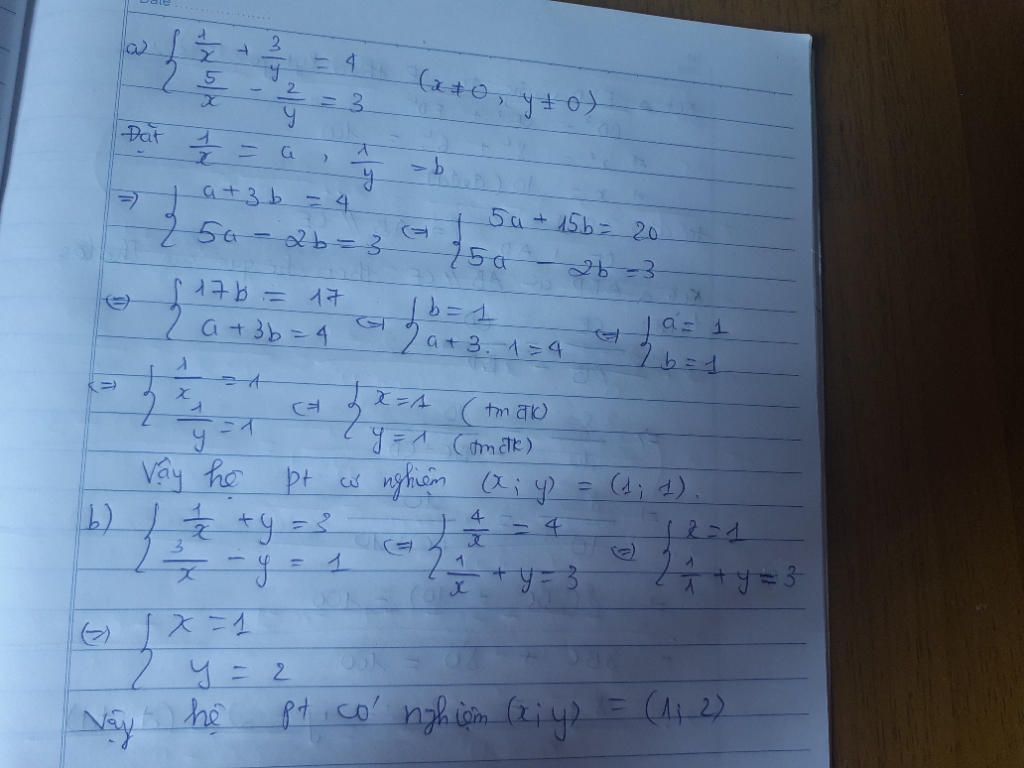 Date :
a) { 1/x + 3/y = 4 (x ≠ 0, y ≠ 0)
5/x - 2/y = 3
Đặt 1/x = a, 1/y = b
=> { a + 3b = 4
5a - 2b = 3 <=> { 5a + 15b = 20
5a - 2b = 3
<=> { 17b = 17
a + 3b = 4 <=> { b = 1
a + 3. 1 = 4 <=> { a = 1
b = 1
<=> { 1/x = 1
1/y = 1 <=> { x = 1 (tmđk)
y = 1 (tmđk)
Vậy hệ pt có nghiệm (x; y) = (1; 1).
b) { 1/x + y = 3
3/x - y = 1 <=> { 4/x = 4
1/x + y = 3 <=> { x = 1
1/1 + y = 3
<=> { x = 1
y = 2
Vậy hệ pt có nghiệm (x; y) = (1; 2)